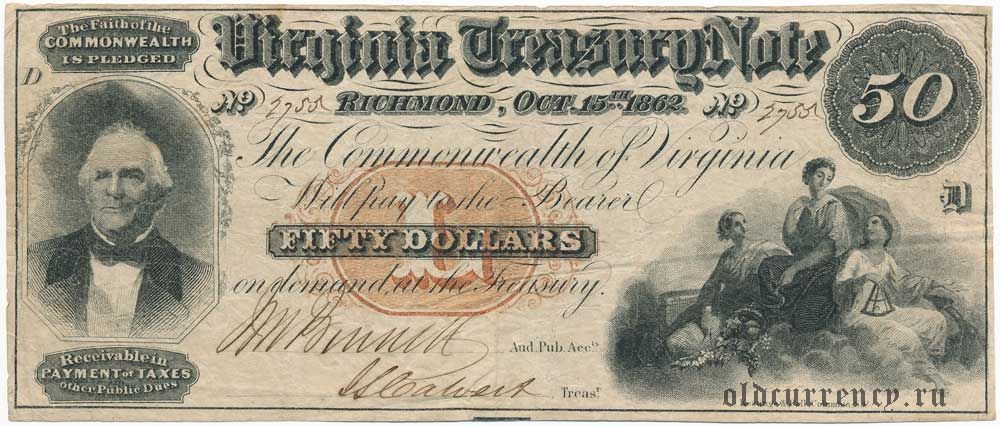 The Faith of the
COMMONWEALTH
IS PLEDGED
Virginia Treasury Note
50
D
No 2755 RICHMOND, OCT. 15TH 1862. No 2755
The Commonwealth of Virginia
Will pay to the Bearer
D
L
FIFTY DOLLARS
on demand, at the Treasury.
Aud. Pub. Accts
Treasr
Receivable in
PAYMENT of TAXES
other Public Dues
oldcurrency.ru